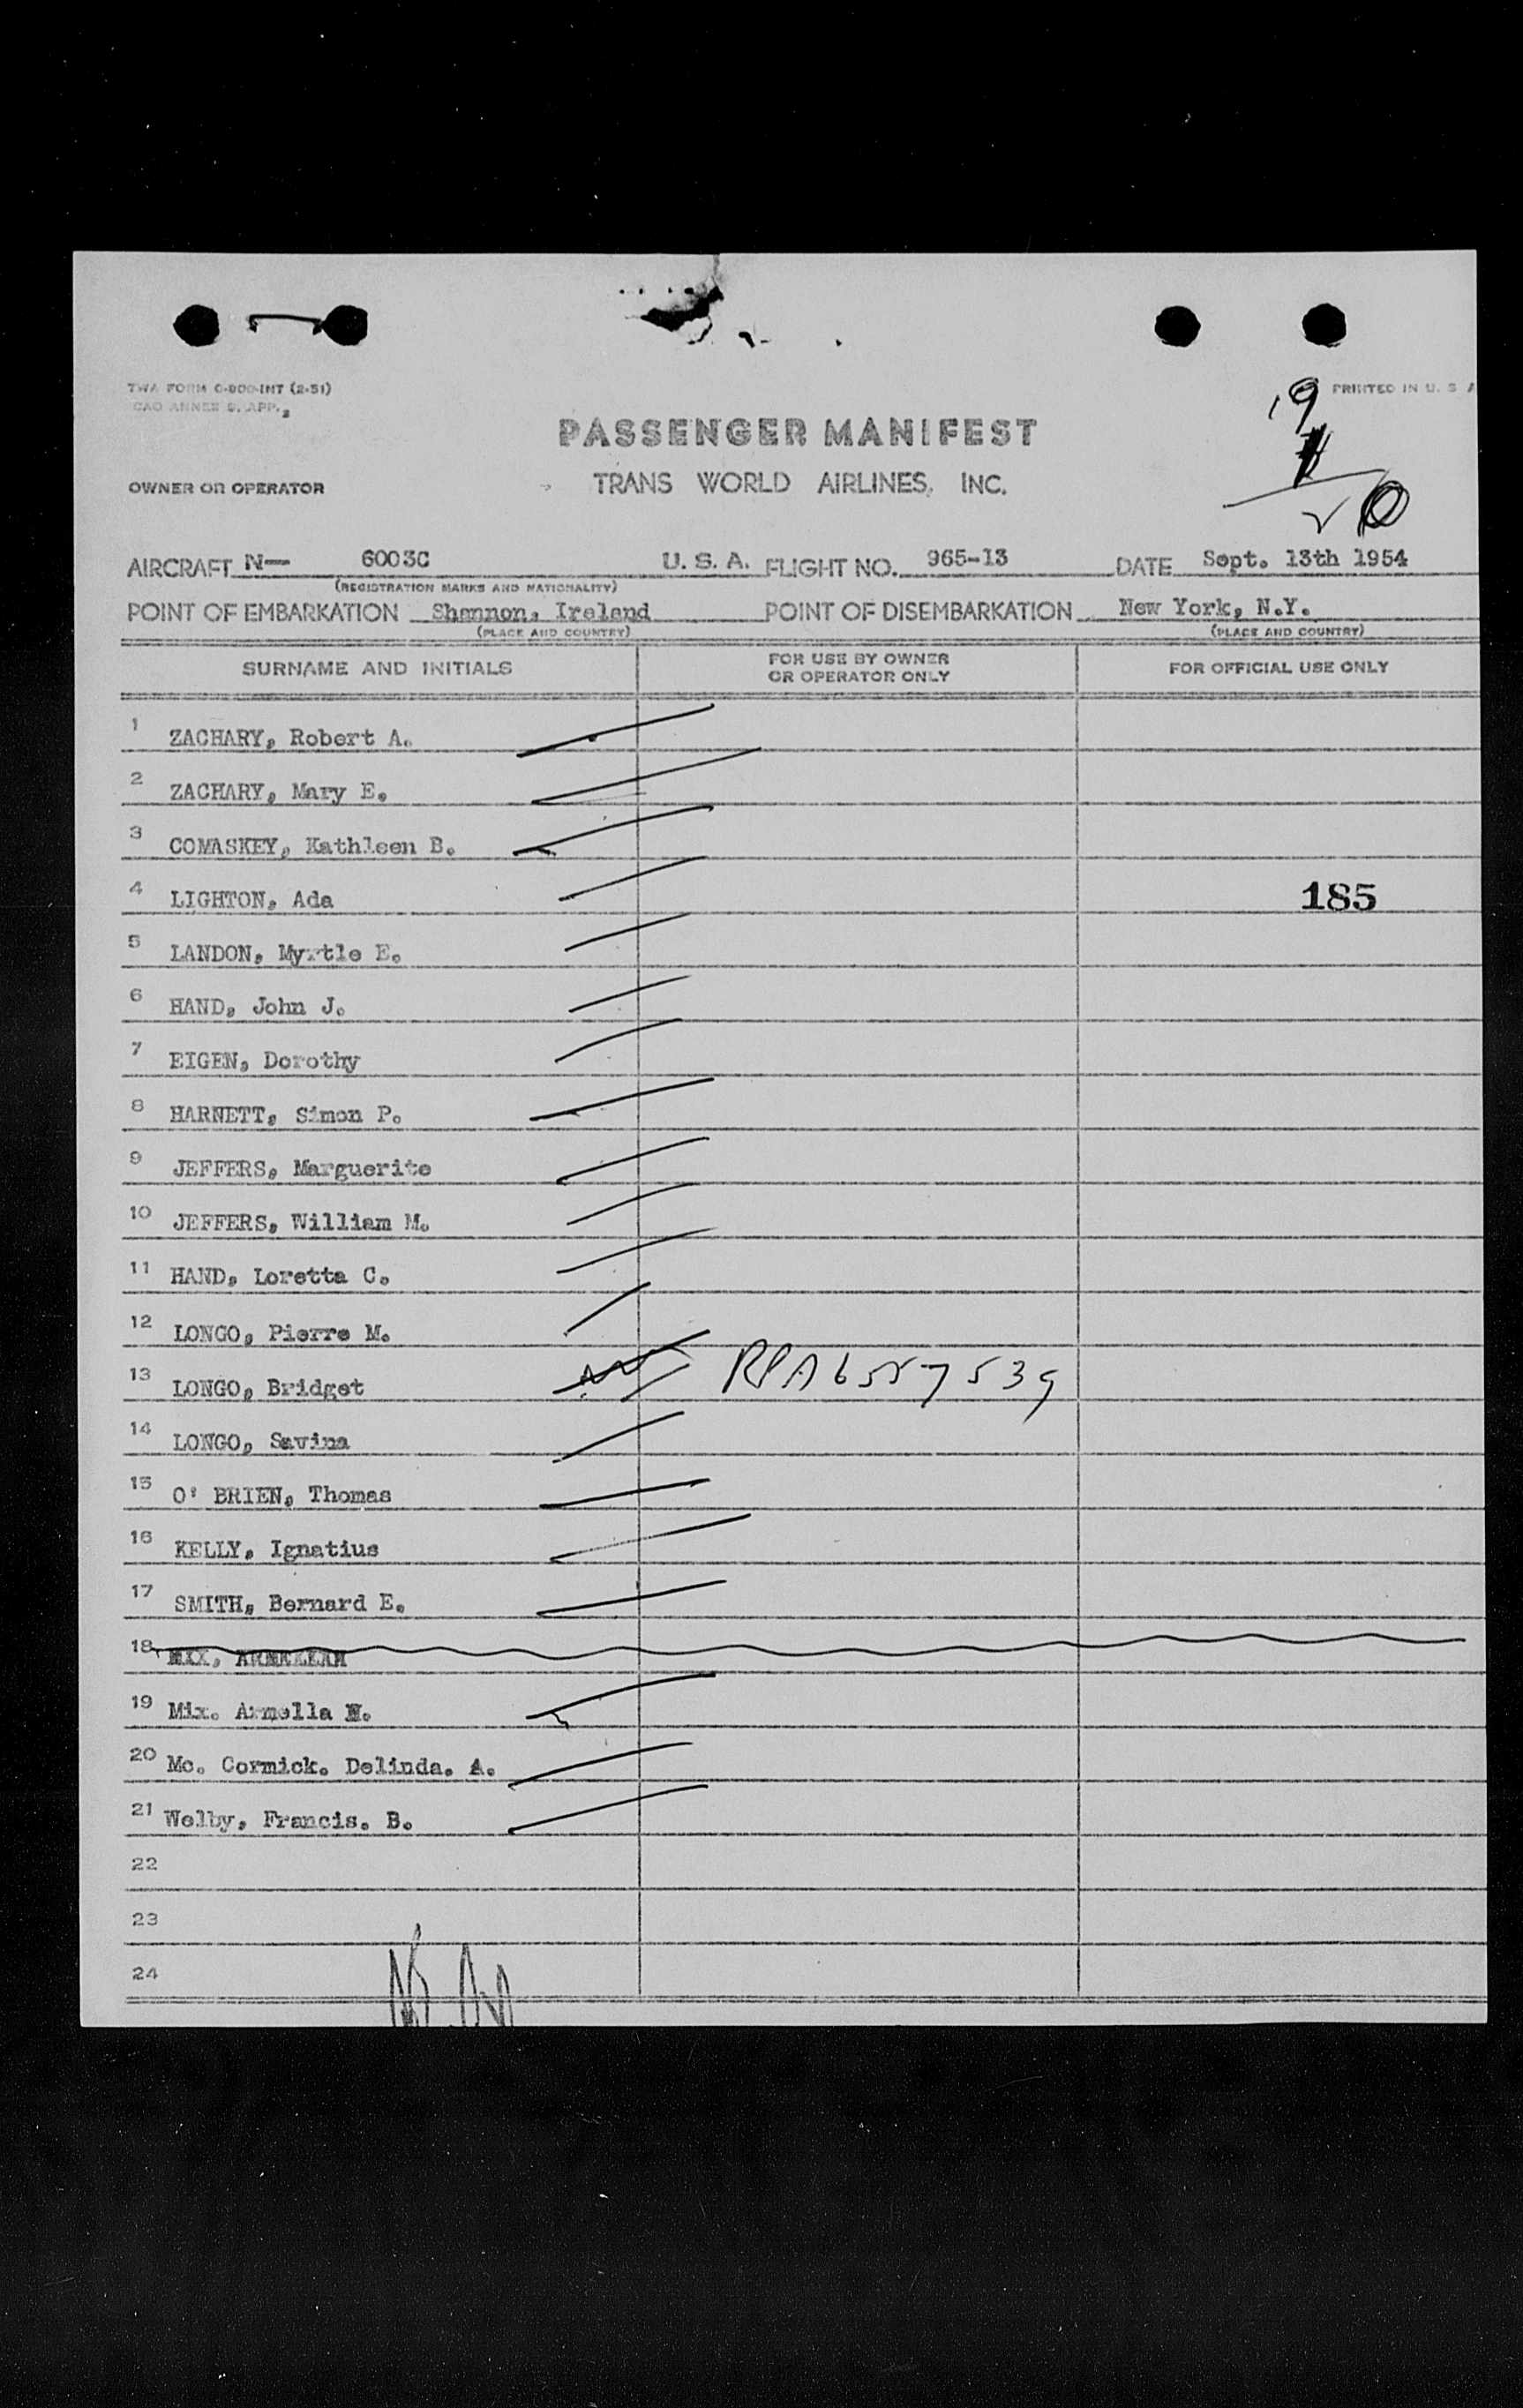 TWA FORM O-800-INT (2-51)
PRINTED IN U. S A
19
1
20
PASSENGER MANIFEST
OWNER OR OPERATOR
TRANS WORLD AIRLINES, INC.
AIRCRAFT N— 6003C U. S. A. FLIGHT NO. 965-13 DATE Sept. 13th 1954
(REGISTRATION MARKS AND NATIONALITY)
POINT OF EMBARKATION Shannon, Ireland POINT OF DISEMBARKATION New York, N.Y.
(PLACE AND COUNTRY) (PLACE AND COUNTRY)
SURNAME AND INITIALS FOR USE BY OWNER OR OPERATOR ONLY FOR OFFICIAL USE ONLY
1 ZACHARY, Robert A.
2 ZACHARY, Mary E.
3 COMASKEY, Kathleen B.
4 LIGHTON, Ada 185
5 LANDON, Myrtle E.
6 HAND, John J.
7 EIGEN, Dorothy
8 HARNETT, Simon P.
9 JEFFERS, Marguerite
10 JEFFERS, William M.
11 HAND, Loretta C.
12 LONGO, Pierre M.
13 LONGO, Bridget
14 LONGO, Savina
15 O' BRIEN, Thomas
16 KELLY, Ignatius
17 SMITH, Bernard E.
18 MIX,
19 Mix. Armella N.
20 Mc. Cormick. Delinda. A.
21 Welby, Francis. B.
22
23
24